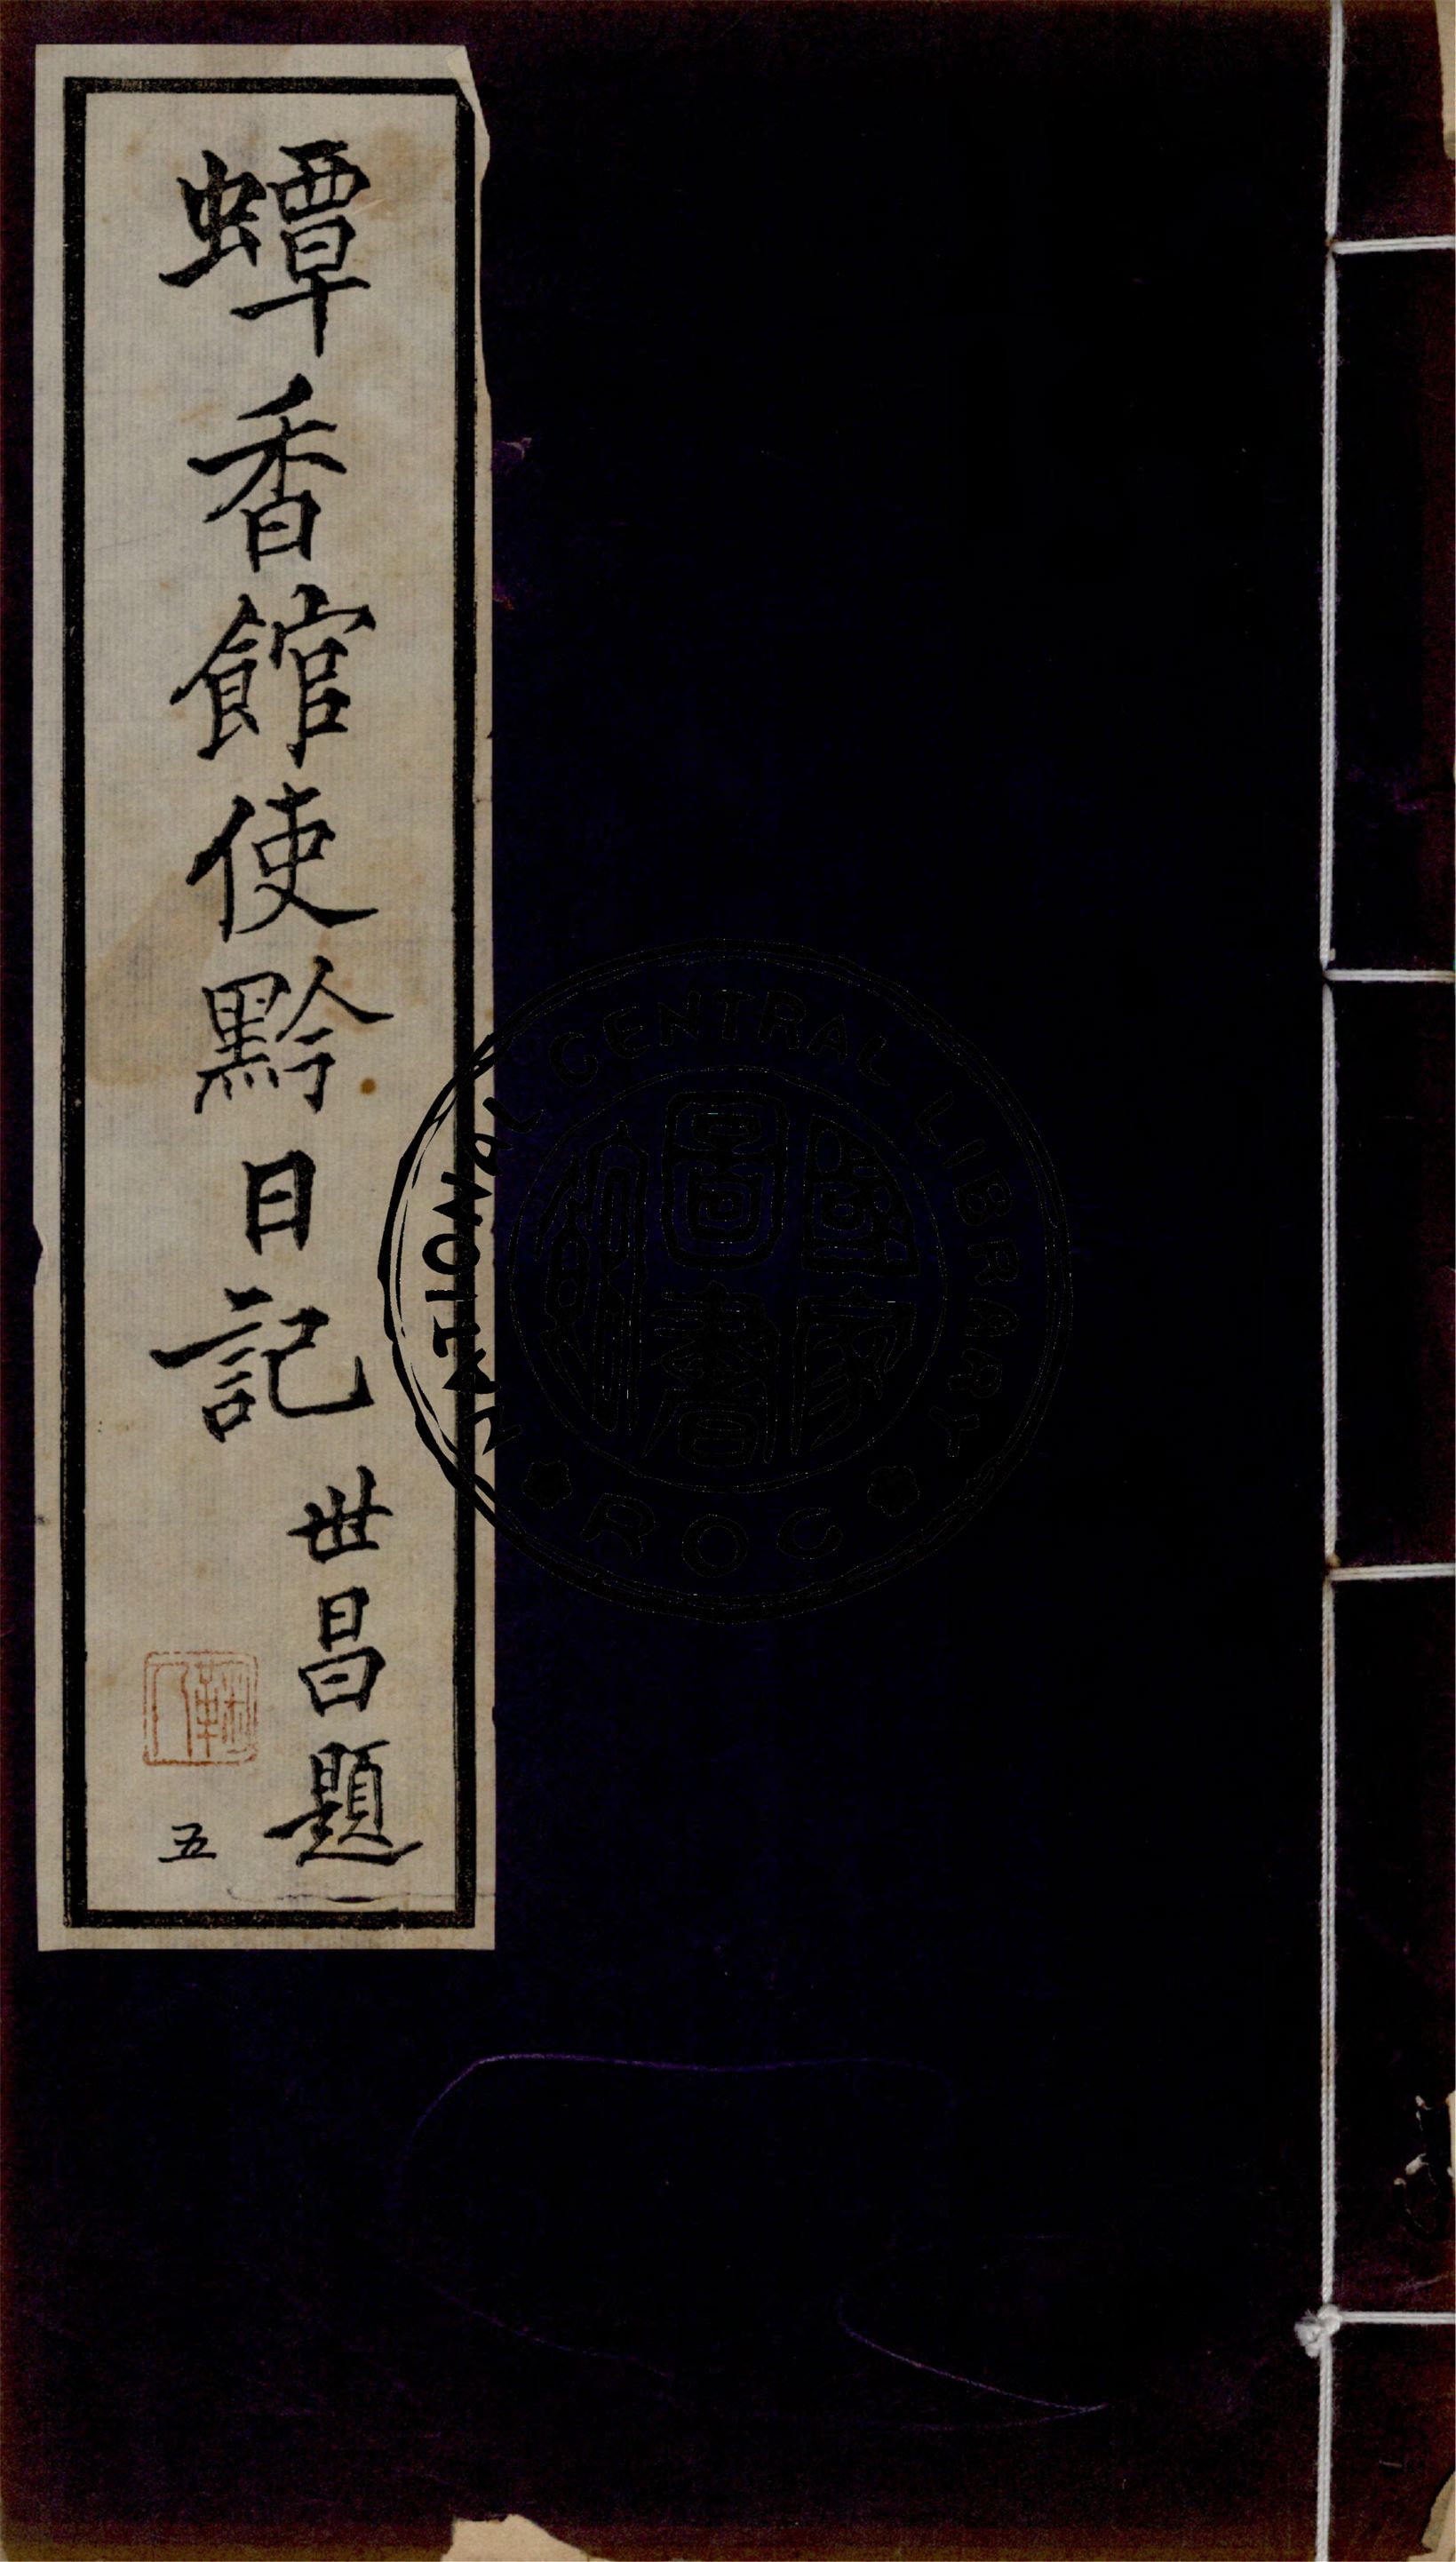 蟫香館使黔日記
世昌題
五
NATIONAL CENTRAL LIBRARY
國家圖書館
ROC